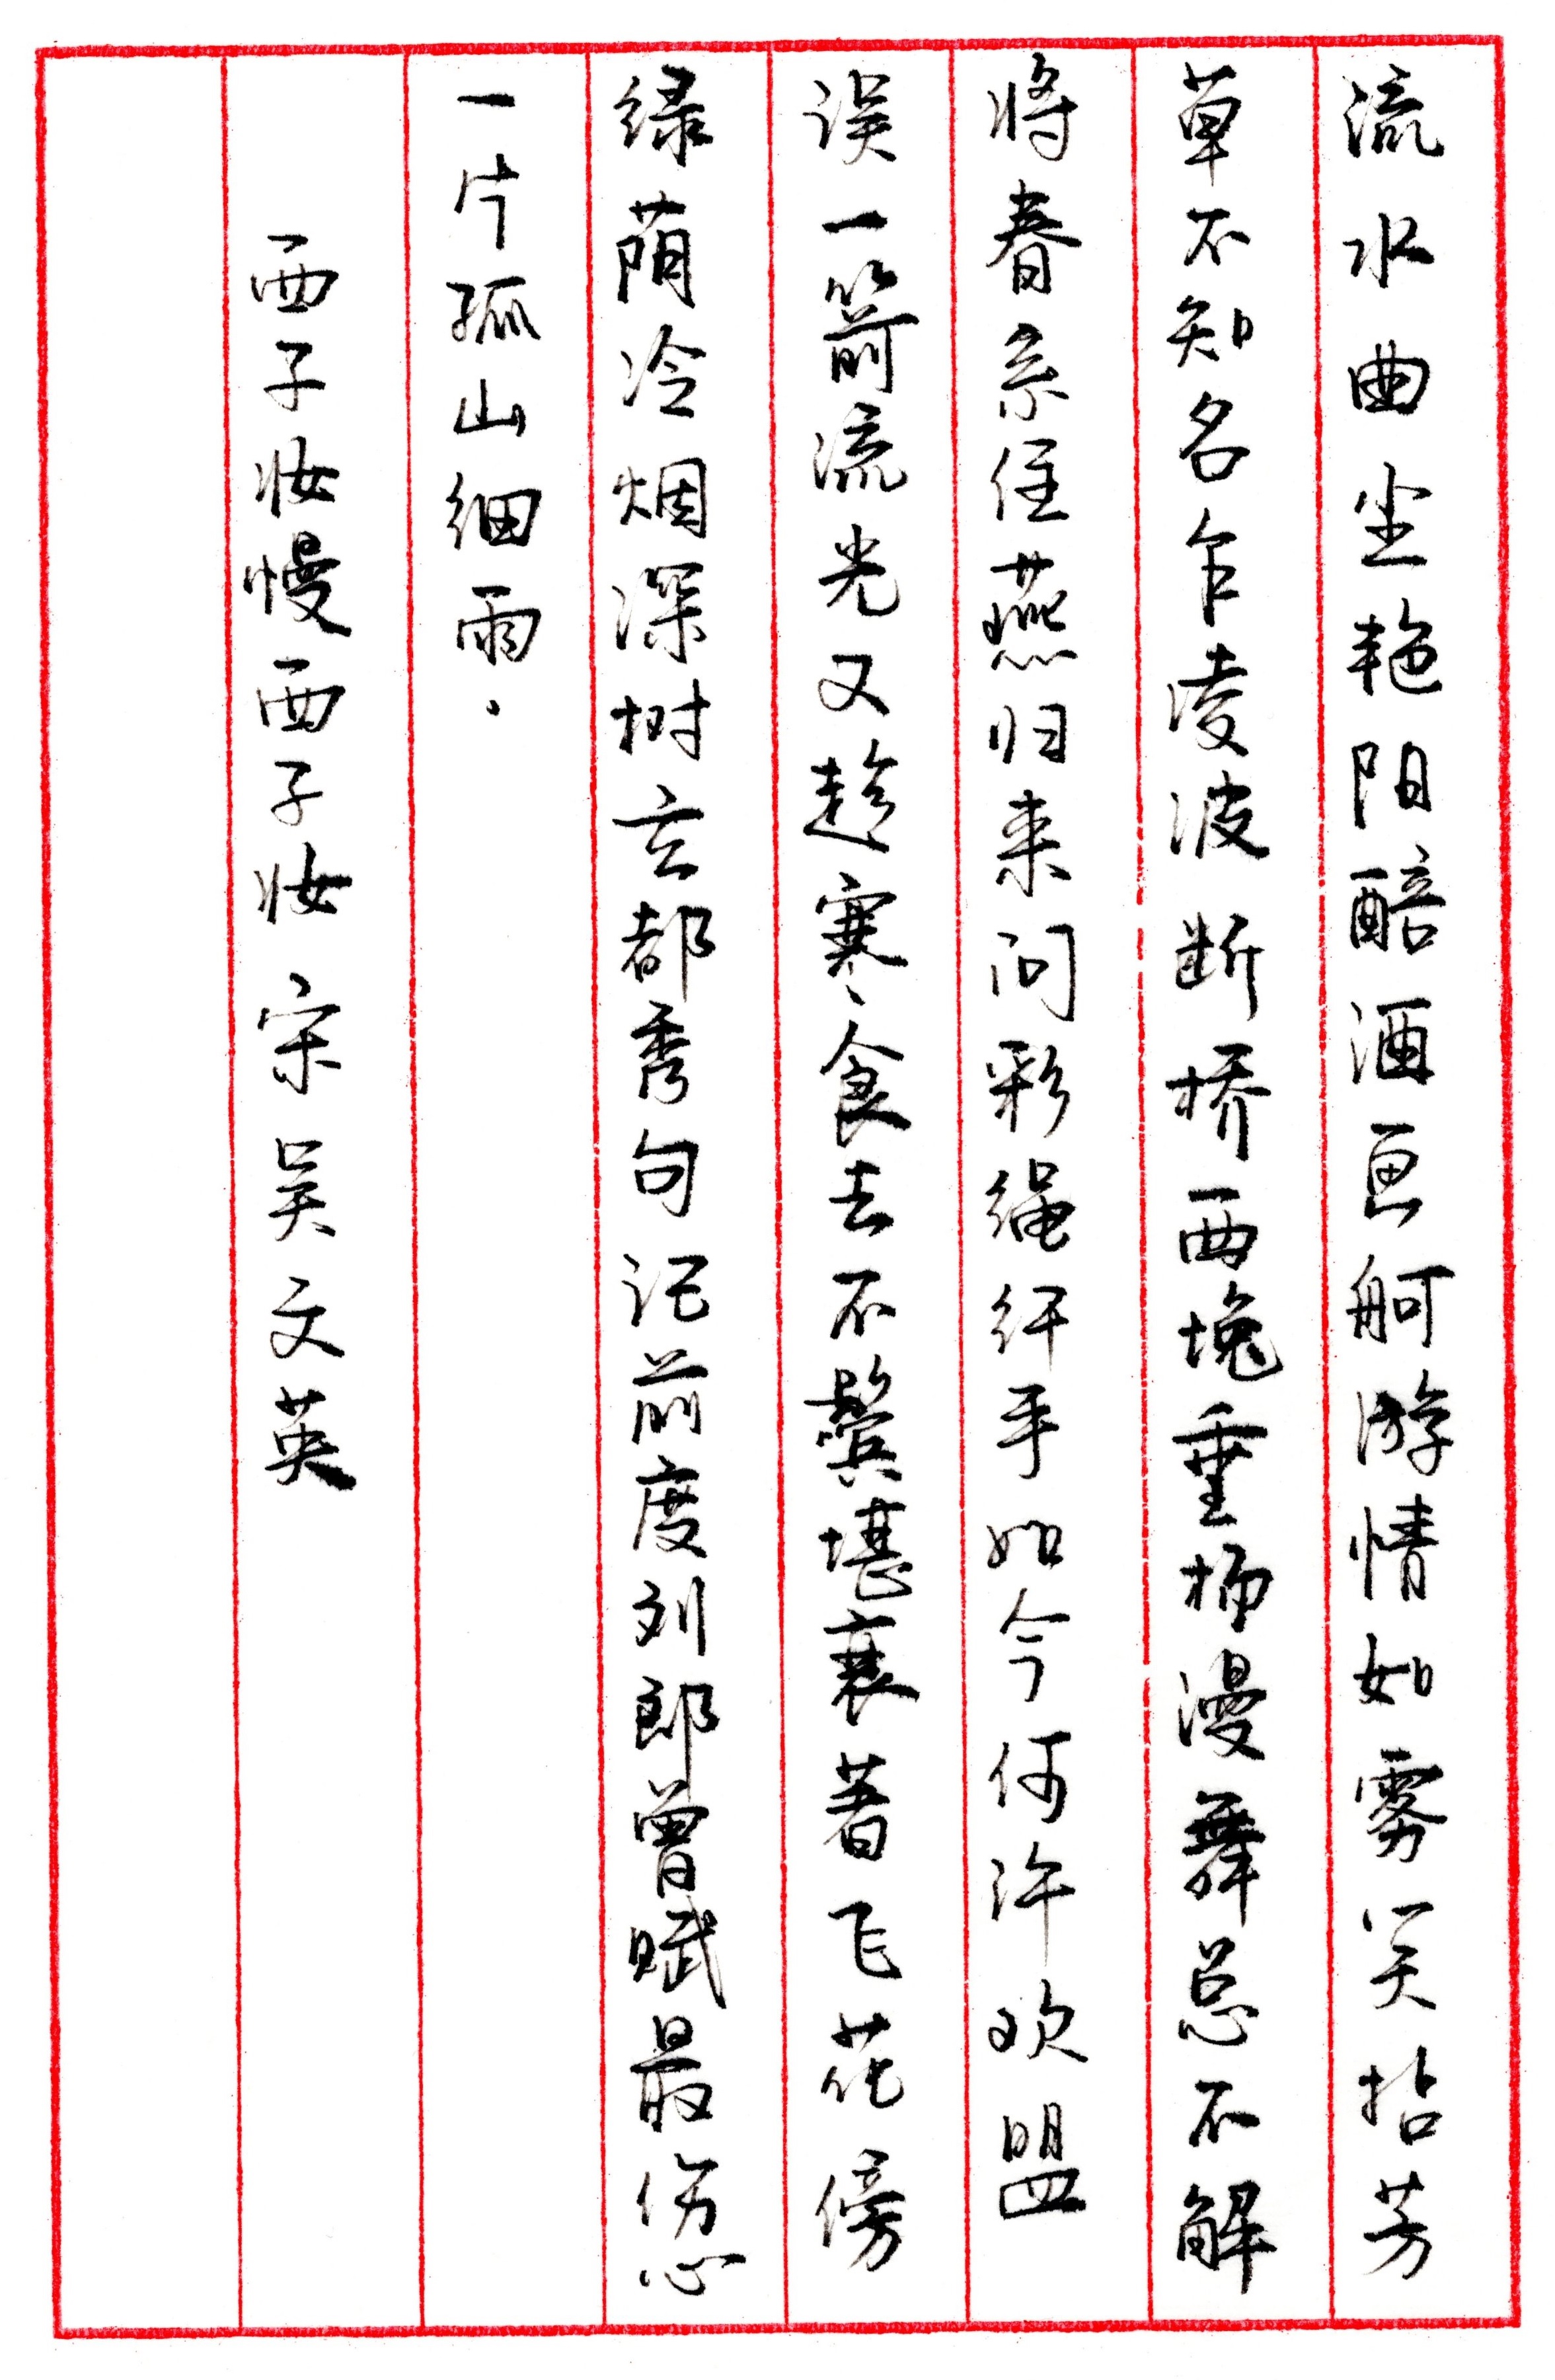 流水曲尘艳阳醅酒画舸游情如雾笑拈芳
草不知名乍凌波断桥西堍垂杨漫舞总不解
将春系住燕归来问彩绳纤手如今何许欢盟
误一箭流光又趁寒食去不鬓堪衰著飞花傍
绿荫冷烟深树玄都秀句记前度刘郎曾赋最伤心
一片孤山细雨.
西子妆慢西子妆 宋 吴文英